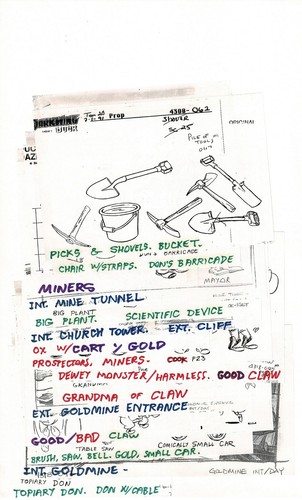 DARKWING
DUCK
Prop
4308-062
SHAVER
SC-25
PILE UP OF
TOOLS
ONLY
ORIGINAL
PICKS & SHOVELS. BUCKET.
DON'S BARRICADE
CHAIR W/STRAPS. DON'S BARRICADE
MAYOR
MINERS
INT. MINE TUNNEL
BIG PLANT
BIG PLANT. SCIENTIFIC DEVICE
INT. CHURCH TOWER. EXT. CLIFF
OX W/CART Y GOLD
PROSPECTORS. MINERS. COOK P23
DEWEY MONSTER/HARMLESS. GOOD CLAW
GRANDMA OF CLAW
EXT. GOLDMINE ENTRANCE
GOOD/BAD CLAW
TABLE SAW
COMICALLY SMALL CAR
BRUSH, SAW. BELL. GOLD, SMALL CAR.
INT. GOLDMINE -
GOLDMINE INT/DAY
TOPIARY DON
TOPIARY DON. DON W/CABLE